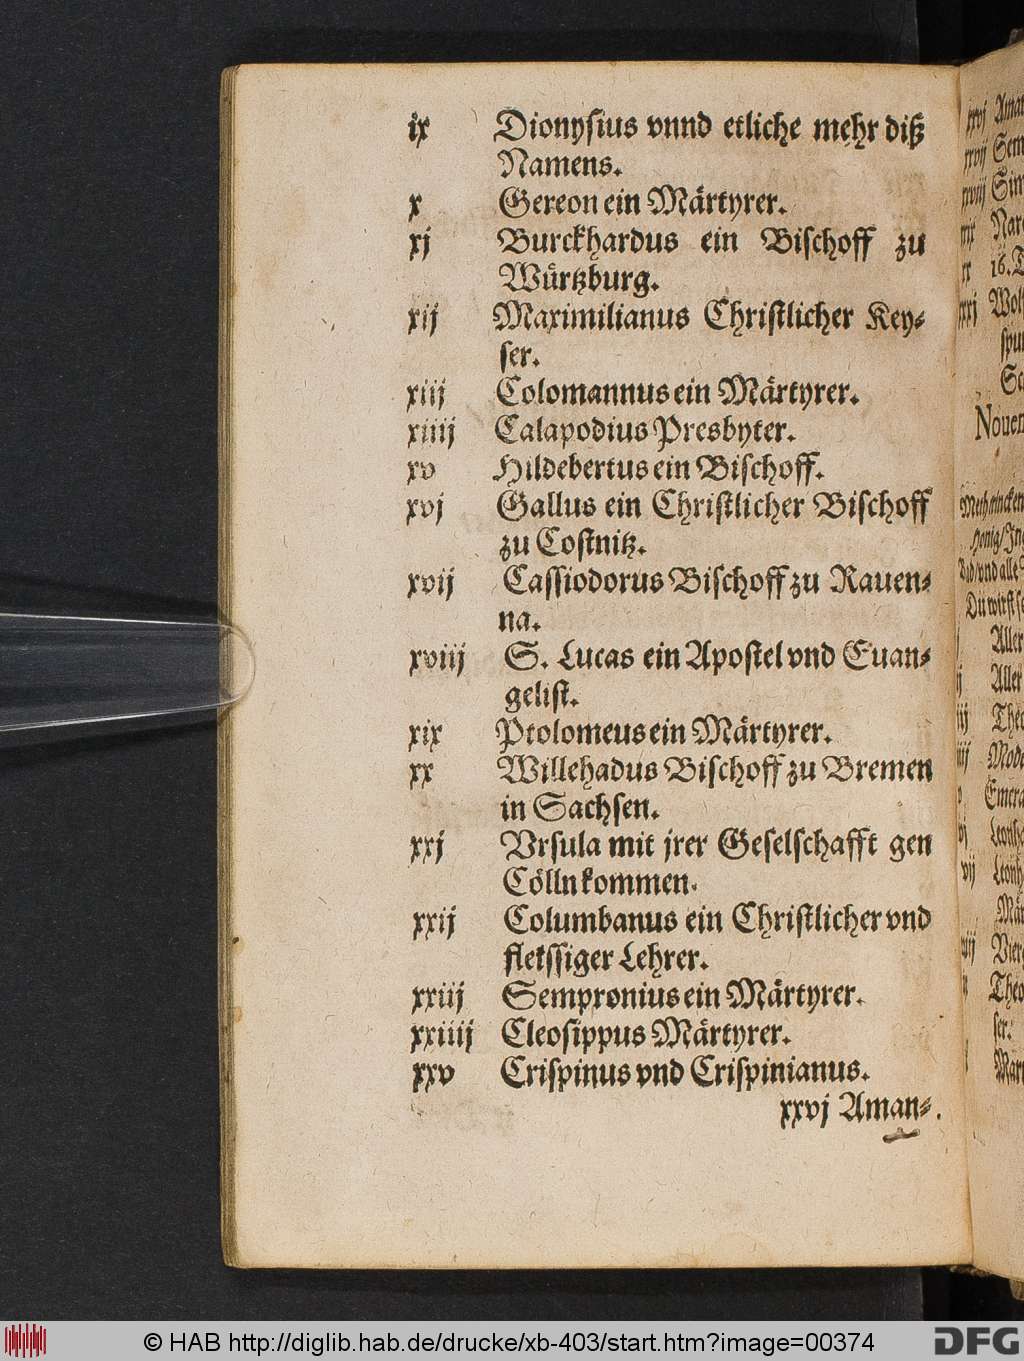 ix Dionysius vnnd etliche mehr diß
Namens.
x Gereon ein Märtyrer.
xj Burckhardus ein Bischoff zu
Würtzburg.
xij Maximilianus Christlicher Key-
ser.
xiij Colomannus ein Märtyrer.
xiiij Calapodius Presbyter.
xv Hildebertus ein Bischoff.
xvj Gallus ein Christlicher Bischoff
zu Costnitz.
xvij Cassiodorus Bischoff zu Rauen-
na.
xviij S. Lucas ein Apostel vnd Euan-
gelist.
xix Ptolomeus ein Märtyrer.
xx Willehadus Bischoff zu Bremen
in Sachsen.
xxj Vrsula mit jrer Geselschafft gen
Cölln kommen.
xxij Columbanus ein Christlicher vnd
fleissiger Lehrer.
xxiij Sempronius ein Märtyrer.
xxiiij Cleosippus Märtyrer.
xxv Crispinus vnd Crispinianus.
xxvj Aman-
© HAB http://diglib.hab.de/drucke/xb-403/start.htm?image=00374
DFG